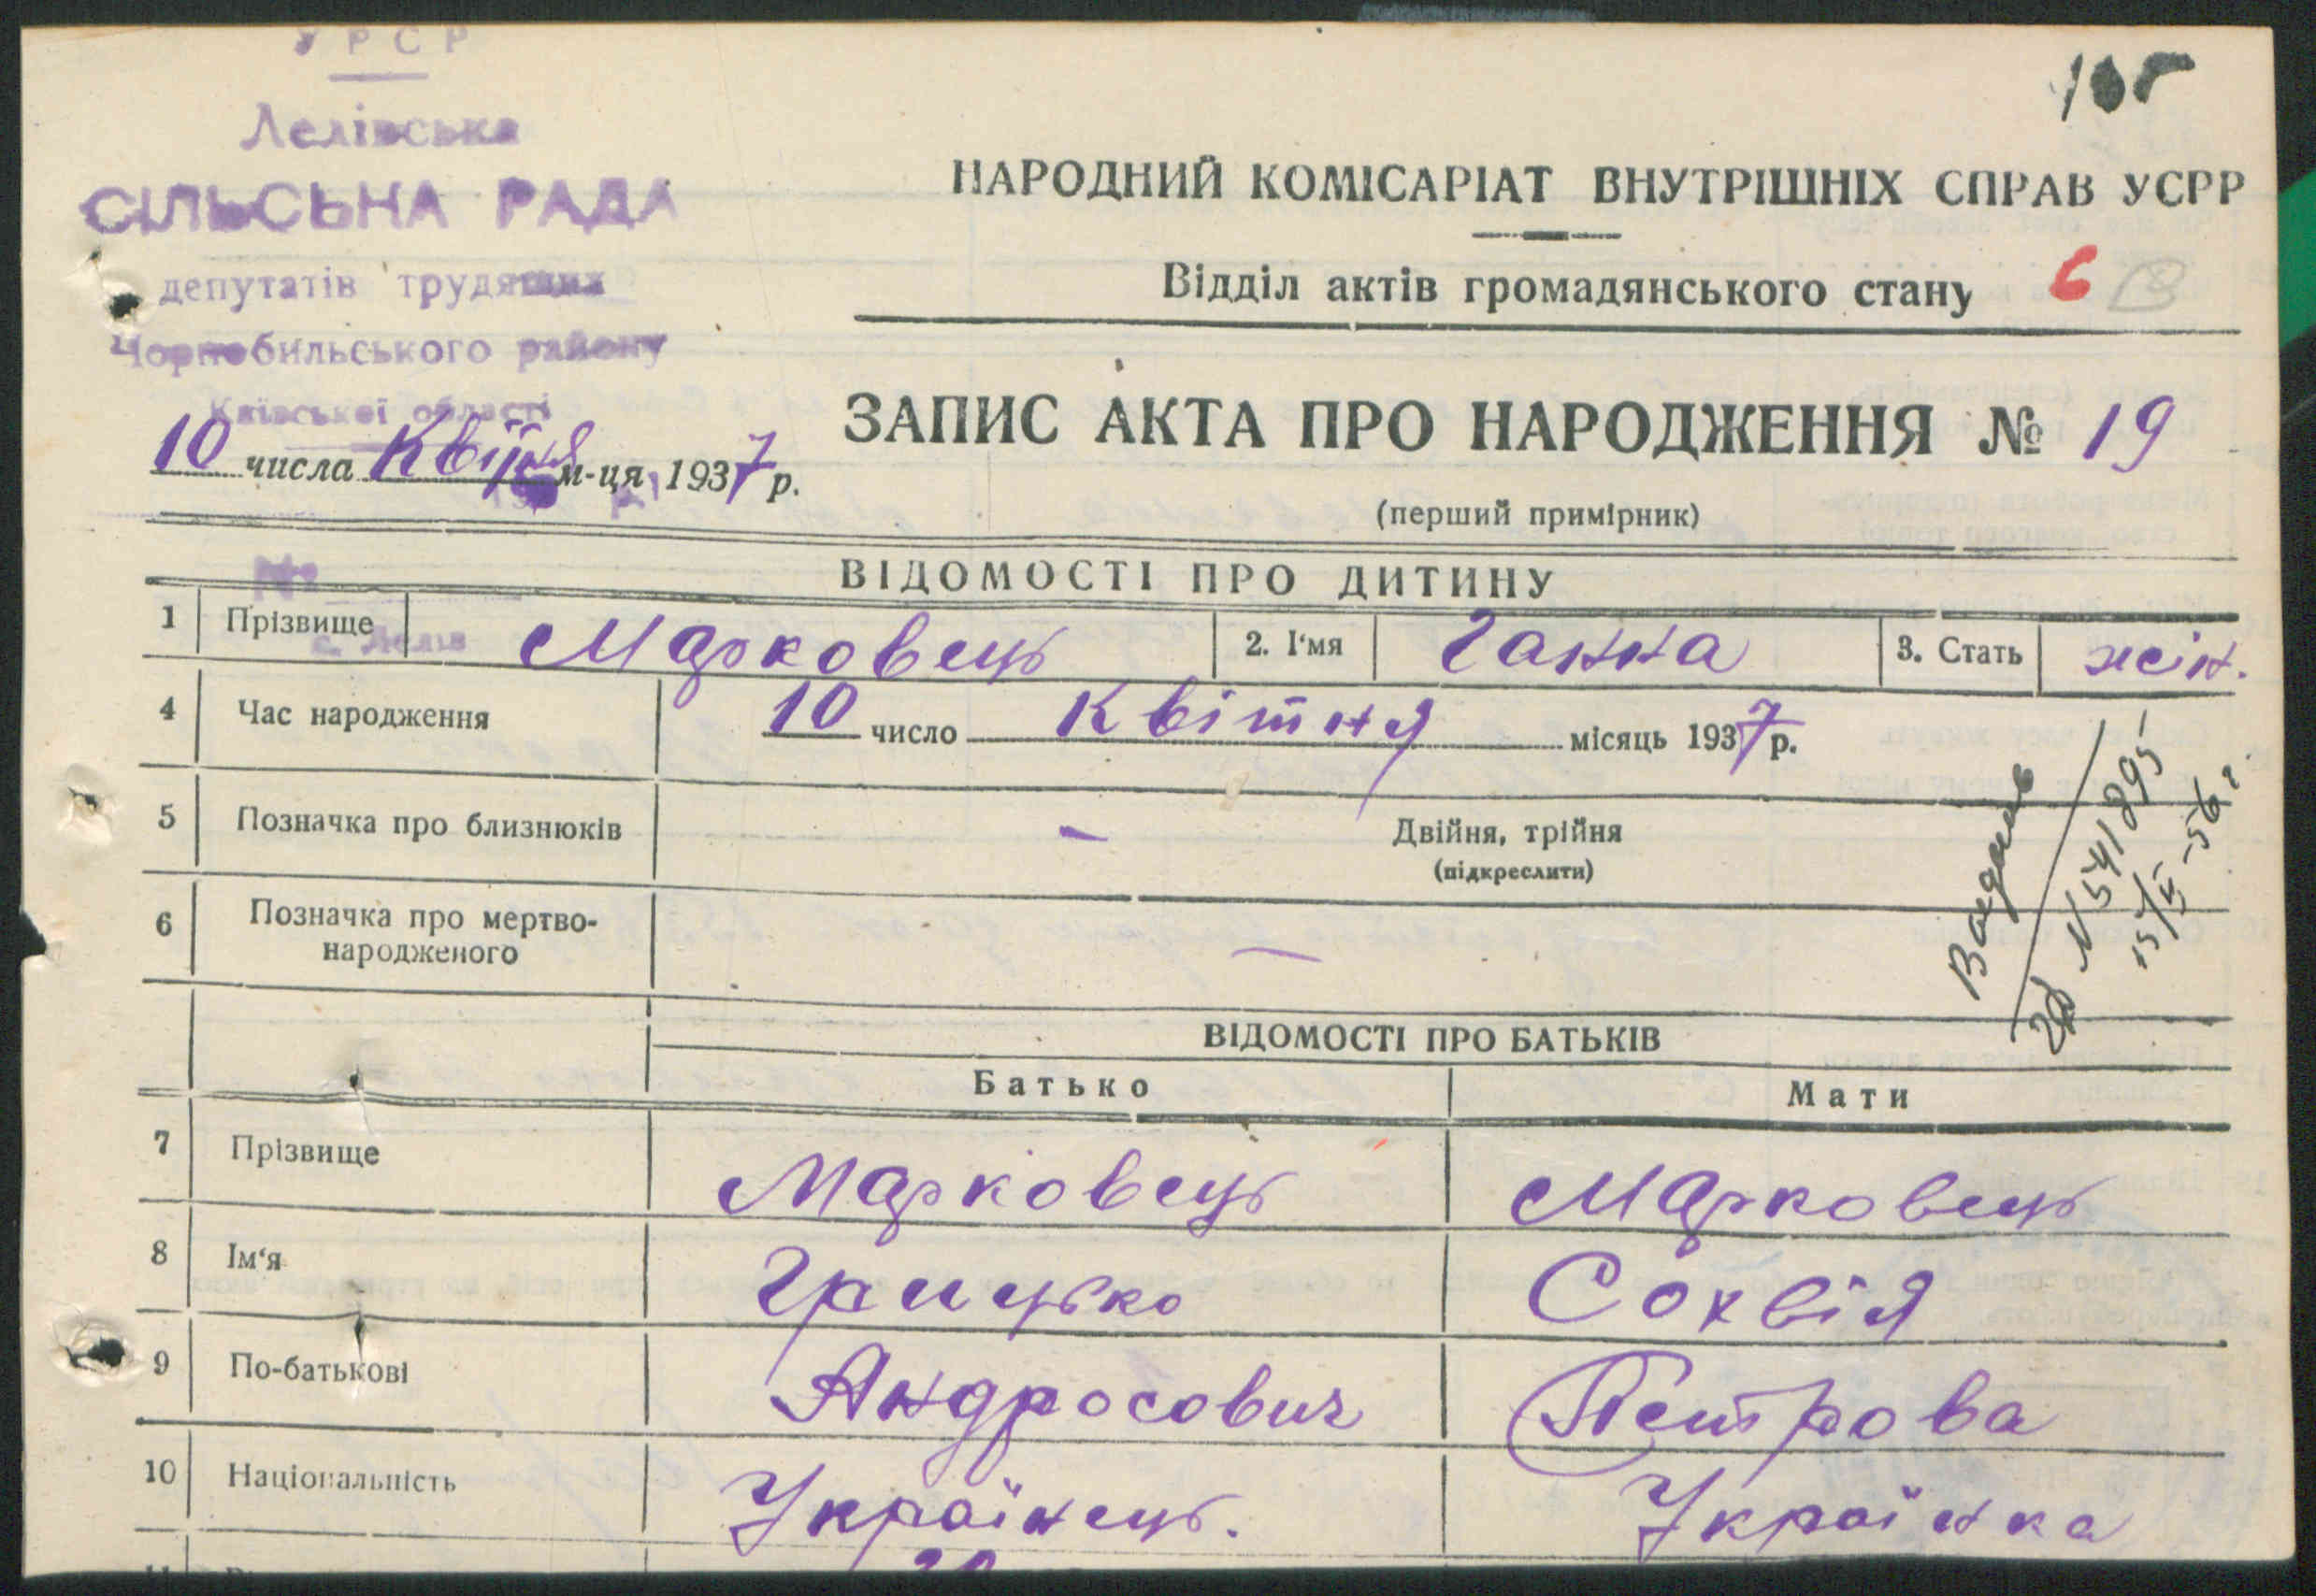 УРСР
Лелівська
СІЛЬСЬКА РАДА
депутатів трудящих
Чорнобильського району
Київської області
10 числа Квітня м-ця 1937 р.
193 р.
№
с. Лелів
105
НАРОДНИЙ КОМІСАРІАТ ВНУТРІШНІХ СПРАВ УСРР
Відділ актів громадянського стану 6 В
ЗАПИС АКТА ПРО НАРОДЖЕННЯ № 19
(перший примірник)
ВІДОМОСТІ ПРО ДИТИНУ
1 Прізвище Марковець 2. І'мя Ганна 3. Стать жін.
4 Час народження 10 число Квітня місяць 1937 р.
5 Позначка про близнюків – Двійня, трійня
(підкреслити)
6 Позначка про мертво-
народженого —
N 541895
ВІДОМОСТІ ПРО БАТЬКІВ
Батько Мати
7 Прізвище Марковець Марковець
8 Ім'я Грицько Сохвія
9 По-батькові Андросович Петрова
10 Національність Українець. Українка